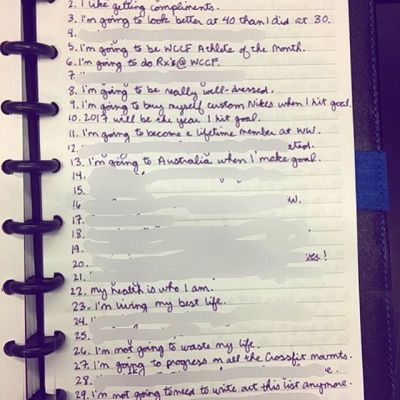 2. I like getting compliments.
3. I'm going to look better at 40 than I did at 30.
4.
5. I'm going to be WCCF Athlete of the Month.
6. I'm going to do Rx's @ WCCF.
7.
8. I'm going to be really well-dressed.
9. I'm going to buy myself custom Nikes when I hit goal.
10. 2017 will be the year I hit goal.
11. I'm going to become a lifetime member at WW.
12.
13. I'm going to Australia when I make goal.
14.
15.
16 w.
17.
18.
19.
20.
21.
22. my health is who I am.
23. I'm living my best life.
24.
25.
26. I'm not going to waste my life.
27. I'm going to progress on all the Crossfit mvmts.
28. e.
29. I'm not going to need to write out this list anymore.